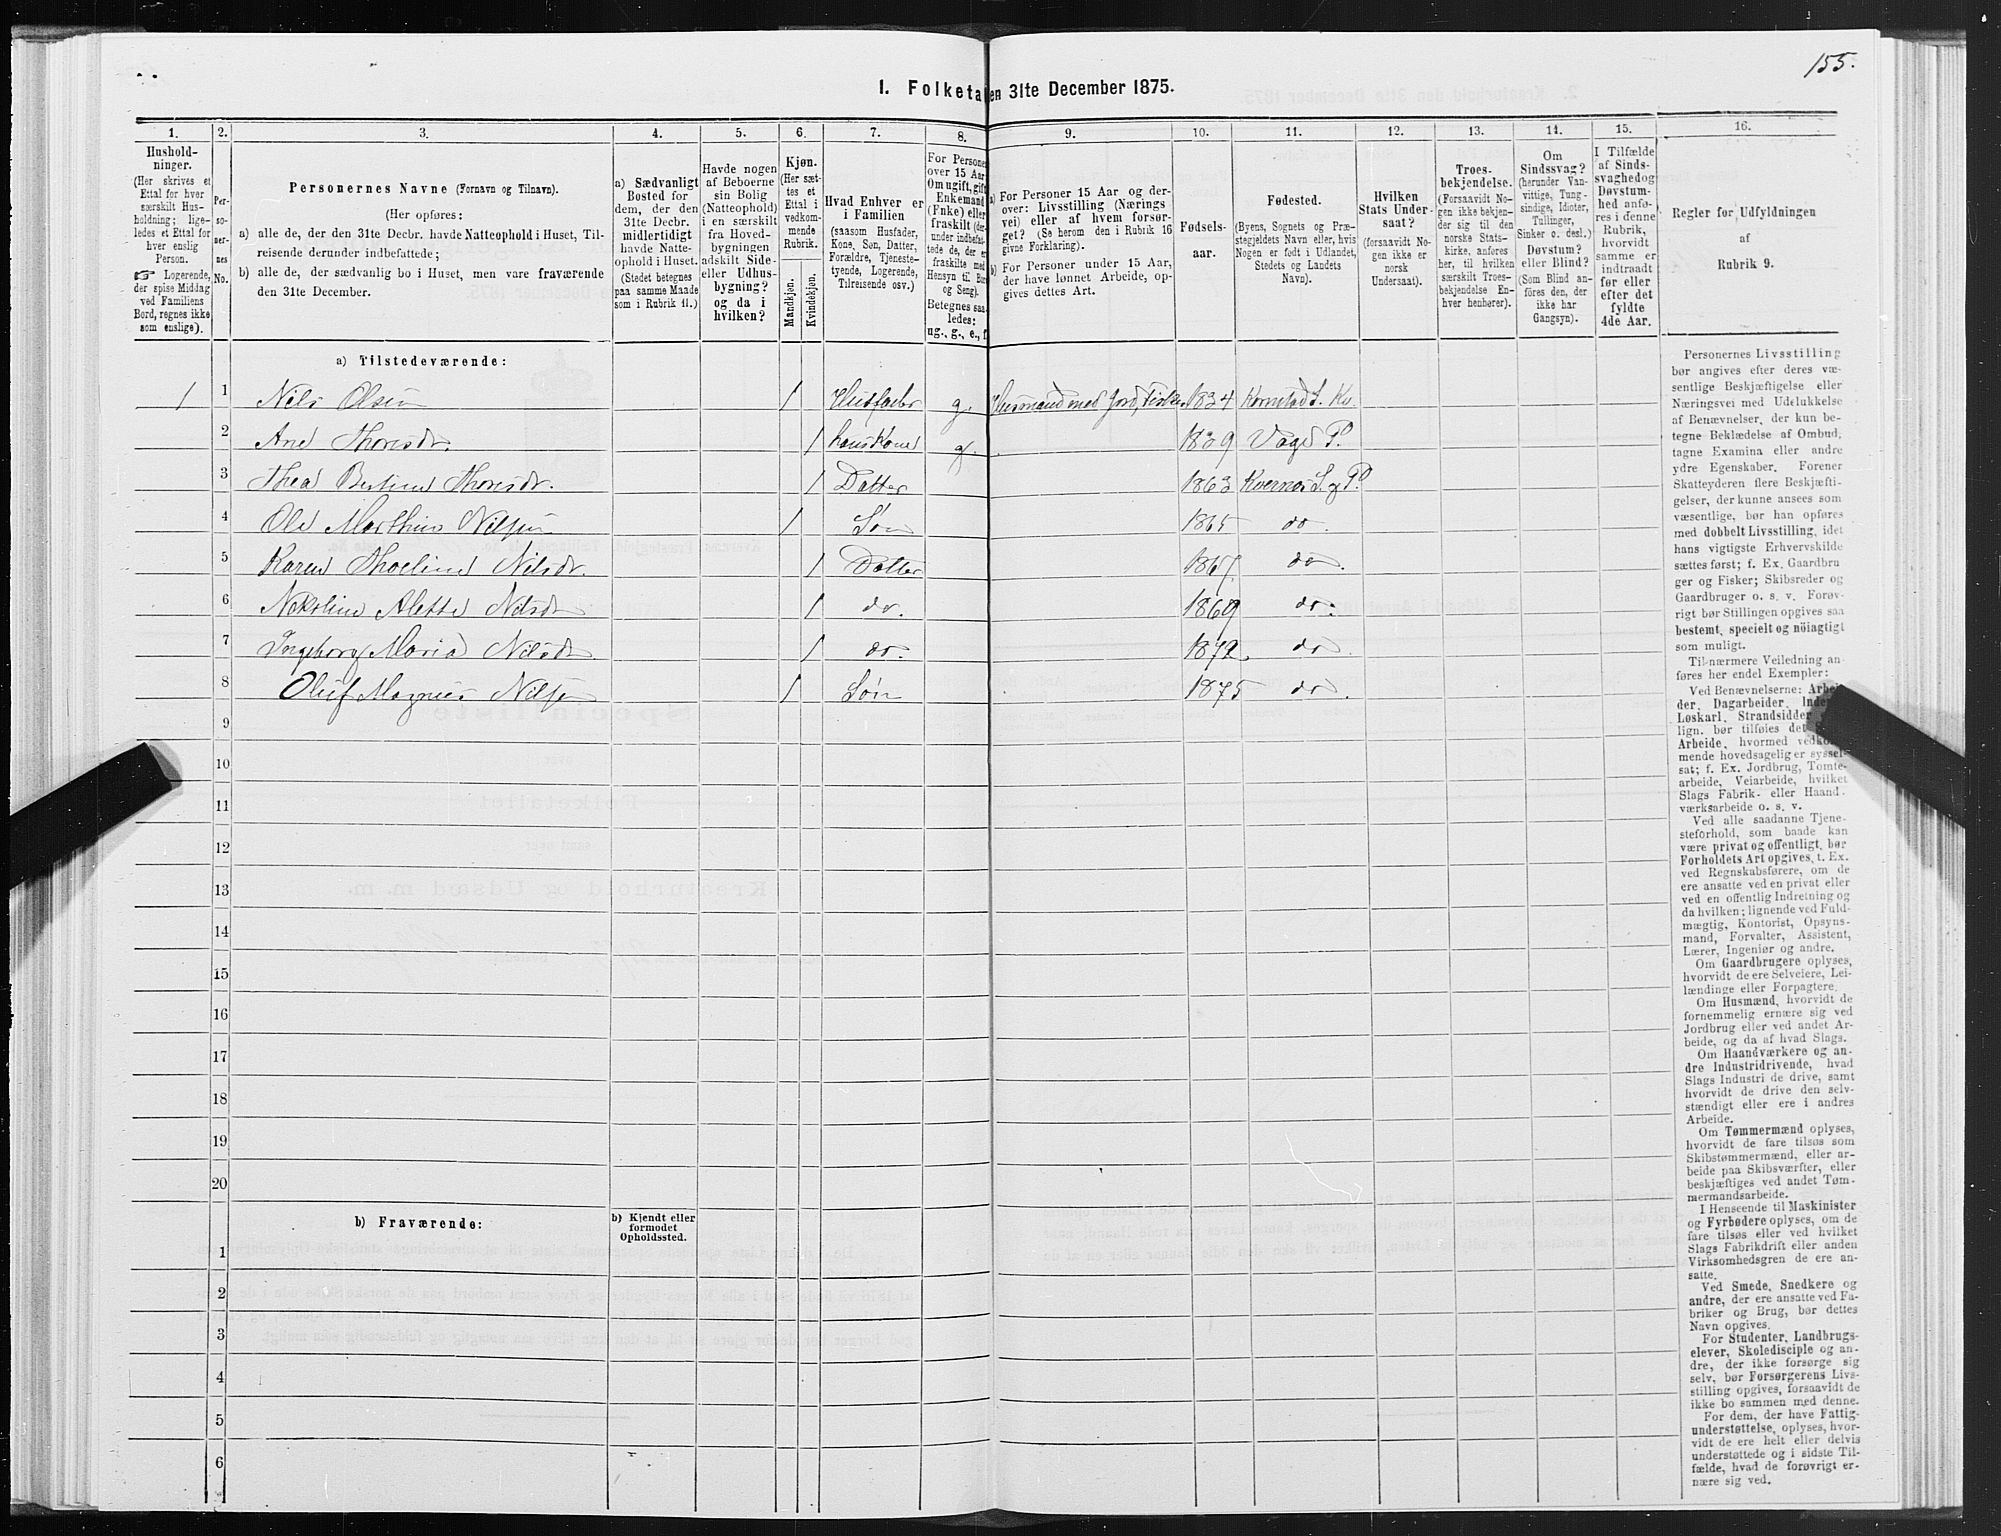 155.
1. Folketa en 31te December 1875.
1. 2. 3. 4. 5. 6. 7. 8. 9. 10. 11. 12. 13. 14. 15. 16.
Hushold-
ninger.
(Her skrives et
Ettal for hver
særskilt Hus-
holdning; lige-
ledes et Ettal for
hver enslig
Person.
☞ Logerende,
der spise Middag
ved Familiens
Bord, regnes ikke
som enslige).
Per-
so-
ner-
nes
No.
Personernes Navne (Fornavn og Tilnavn).
(Her opføres:
a) alle de, der den 31te Decbr. havde Natteophold i Huset, Til-
reisende derunder indbefattede;
b) alle de, der sædvanlig bo i Huset, men vare fraværende
den 31te December.
a) Sædvanligt
Bosted for
dem, der den
31te Decbr.
midlertidigt
havde Natte-
ophold i Huset.
(Stedet betegnes
paa samme Maade
som i Rubrik 11.)
Havde nogen
af Beboerne
sin Bolig
(Natteophold)
i en særskilt
fra Hoved-
bygningen
adskilt Side-
eller Udhus-
bygning?
og da i
hvilken?
Kjøn.
(Her sæt-
tes et
Ettal i
vedkom-
mende
Rubrik.
Mandkjøn.
Kvindekjøn.
Hvad Enhver er
i Familien
(saasom Husfader,
Kone, Søn, Datter,
Forældre, Tjeneste-
tyende, Logerende,
Tilreisende osv.)
For Persone
over 15 Aar
Om ugift, gift
Enkemand
(Enke) eller
fraskilt (der-
under indbefat-
tede de, der er
fraskilte med
Hensyn til Bor
og Seng).
Betegnes saa-
ledes:
ug., g., e., f.
a) For Personer 15 Aar og der-
over: Livsstilling (Nærings
vei) eller af hvem forsør-
get? (Se herom den i Rubrik 16
givne Forklaring).
b) For Personer under 15 Aar,
der have lønnet Arbeide, op-
gives dettes Art.
Fødsels-
aar.
Fødested.
(Byens, Sognets og Præ-
stegjeldets Navn eller, hvis
Nogen er født i Udlandet,
Stedets og Landets
Navn).
Hvilken
Stats Under-
saat?
(forsaavidt No-
gen ikke er
norsk
Undersaat).
Troes-
bekjendelse.
(Forsaavidt No-
gen ikke bekjen-
der sig til den
norske Stats-
kirke, anføres
her, til hvilken
særskilt Troes-
bekjendelse En-
hver henhører).
Om
Sindssvag?
(herunder Van-
vittige, Tung-
sindige, Idioter,
Tullinger,
Sinker o. desl.)
Døvstum?
eller Blind?
(Som Blind an-
føres den, der
ikke har
Gangsyn).
I Tilfælde
af Sinds-
svaghed og
Døvstum-
hed anfø-
res i denne
Rubrik,
hvorvidt
samme er
indtraadt
før eller
efter det
fyldte
4de Aar.
Regler for Udfyldningen
af
Rubrik 9.
a) Tilstedeværende:
1 1 Nils Olsen 1 Husfader g. Husmand med Jord, Fisker 1834 Kornstad S. Kv.
2 Ane Thoresdr. 1 hans Kone g. 1839 Vage P.
3 Thea Bertine Thoresdr. 1 Datter 1863 Kvernes S. og P.
4 Ole Marthin Nilsen 1 Søn 1865 do.
5 Karen Thoeline Nilsdr. 1 Datter 1867 do.
6 Nikoline Alette Nilsdr 1 do. 1869 do.
7 Ingeborg Maria Nilsdr. 1 do. 1872 do.
8 Oluf Magnus Nilsen 1 Søn 1875 do.
9
10
11
12
13
14
15
16
17
18
19
20
b) Fraværende:
b) Kjendt eller
formodet
Opholdssted.
1
2
3
4
5
6
Personernes Livsstilling
bør angives efter deres væ-
sentlige Beskjæftigelse eller
Næringsvei med Udelukkelse
af Benævnelser, der kun be-
tegne Beklædelse af Ombud,
tagne Examina eller andre
ydre Egenskaber. Forener
Skatteyderen flere Beskjæfti-
gelser, der kunne ansees som
væsentlige, bør han opføres
med dobbelt Livsstilling, idet
hans vigtigste Erhvervskilde
sættes først; f. Ex. Gaardbru
ger og Fisker; Skibsreder og
Gaardbruger o. s. v. Forøv-
rigt bør Stillingen opgives saa
bestemt, specielt og nøiagtigt
som muligt.
Til nærmere Veiledning an-
føres her endel Exempler:
Ved Benævnelserne: Arbei
der, Dagarbeider, Inder
Løskarl, Strandsidder
lign. bør tilføies det
Arbeide, hvormed vedkom-
mende hovedsagelig er syssel-
sat; f. Ex. Jordbrug, Tomte-
arbeide, Veiarbeide, hvilket
Slags Fabrik- eller Haand-
værksarbeide o. s. v.
Ved alle saadanne Tjene-
steforhold, som baade kan
være privat og offentligt, bør
Forholdets Art opgives, t. Ex.
ved Regnskabsførere, om de
ere ansatte ved en privat eller
ved en offentlig Indretning og
da hvilken; lignende ved Fuld-
mægtig, Kontorist, Opsyns-
mand, Forvalter, Assistent,
Lærer, Ingeniør og andre.
Om Gaardbrugere oplyses,
hvorvidt de ere Selveiere, Lei-
lændinge eller Forpagtere.
Om Husmænd, hvorvidt de
fornemmelig ernære sig ved
Jordbrug eller ved andet Ar-
beide, og da af hvad Slags.
Om Haandværkere og an-
dre Industridrivende, hvad
Slags Industri de drive, samt
hvorvidt de drive den selv-
stændigt eller ere i andres
Arbeide.
Om Tømmermænd oplyses,
hvorvidt de fare tilsøs som
Skibstømmermænd, eller ar-
beide paa Skibsværfter, eller
beskjæftiges ved andet Tøm-
mermandsarbeide.
I Henseende til Maskinister
og Fyrbødere oplyses, om de
fare tilsøs eller ved hvilket
Slags Fabrikdrift eller anden
Virksomhedsgren de ere an-
satte.
Ved Smede, Snedkere og
andre, der ere ansatte ved Fa-
briker og Brug, bør dettes
Navn opgives.
For Studenter, Landbrugs-
elever, Skoledisciple og an-
dre, der ikke forsørge sig
selv, bør Forsørgerens Livs-
stilling opgives, forsaavidt de
ikke bo sammen med denne.
For dem, der have Fattig-
understøttelse, oplyses, hvor-
vidt de ere helt eller delvis
understøttede og i sidste Til-
fælde, hvad de forøvrigt er-
nære sig ved.